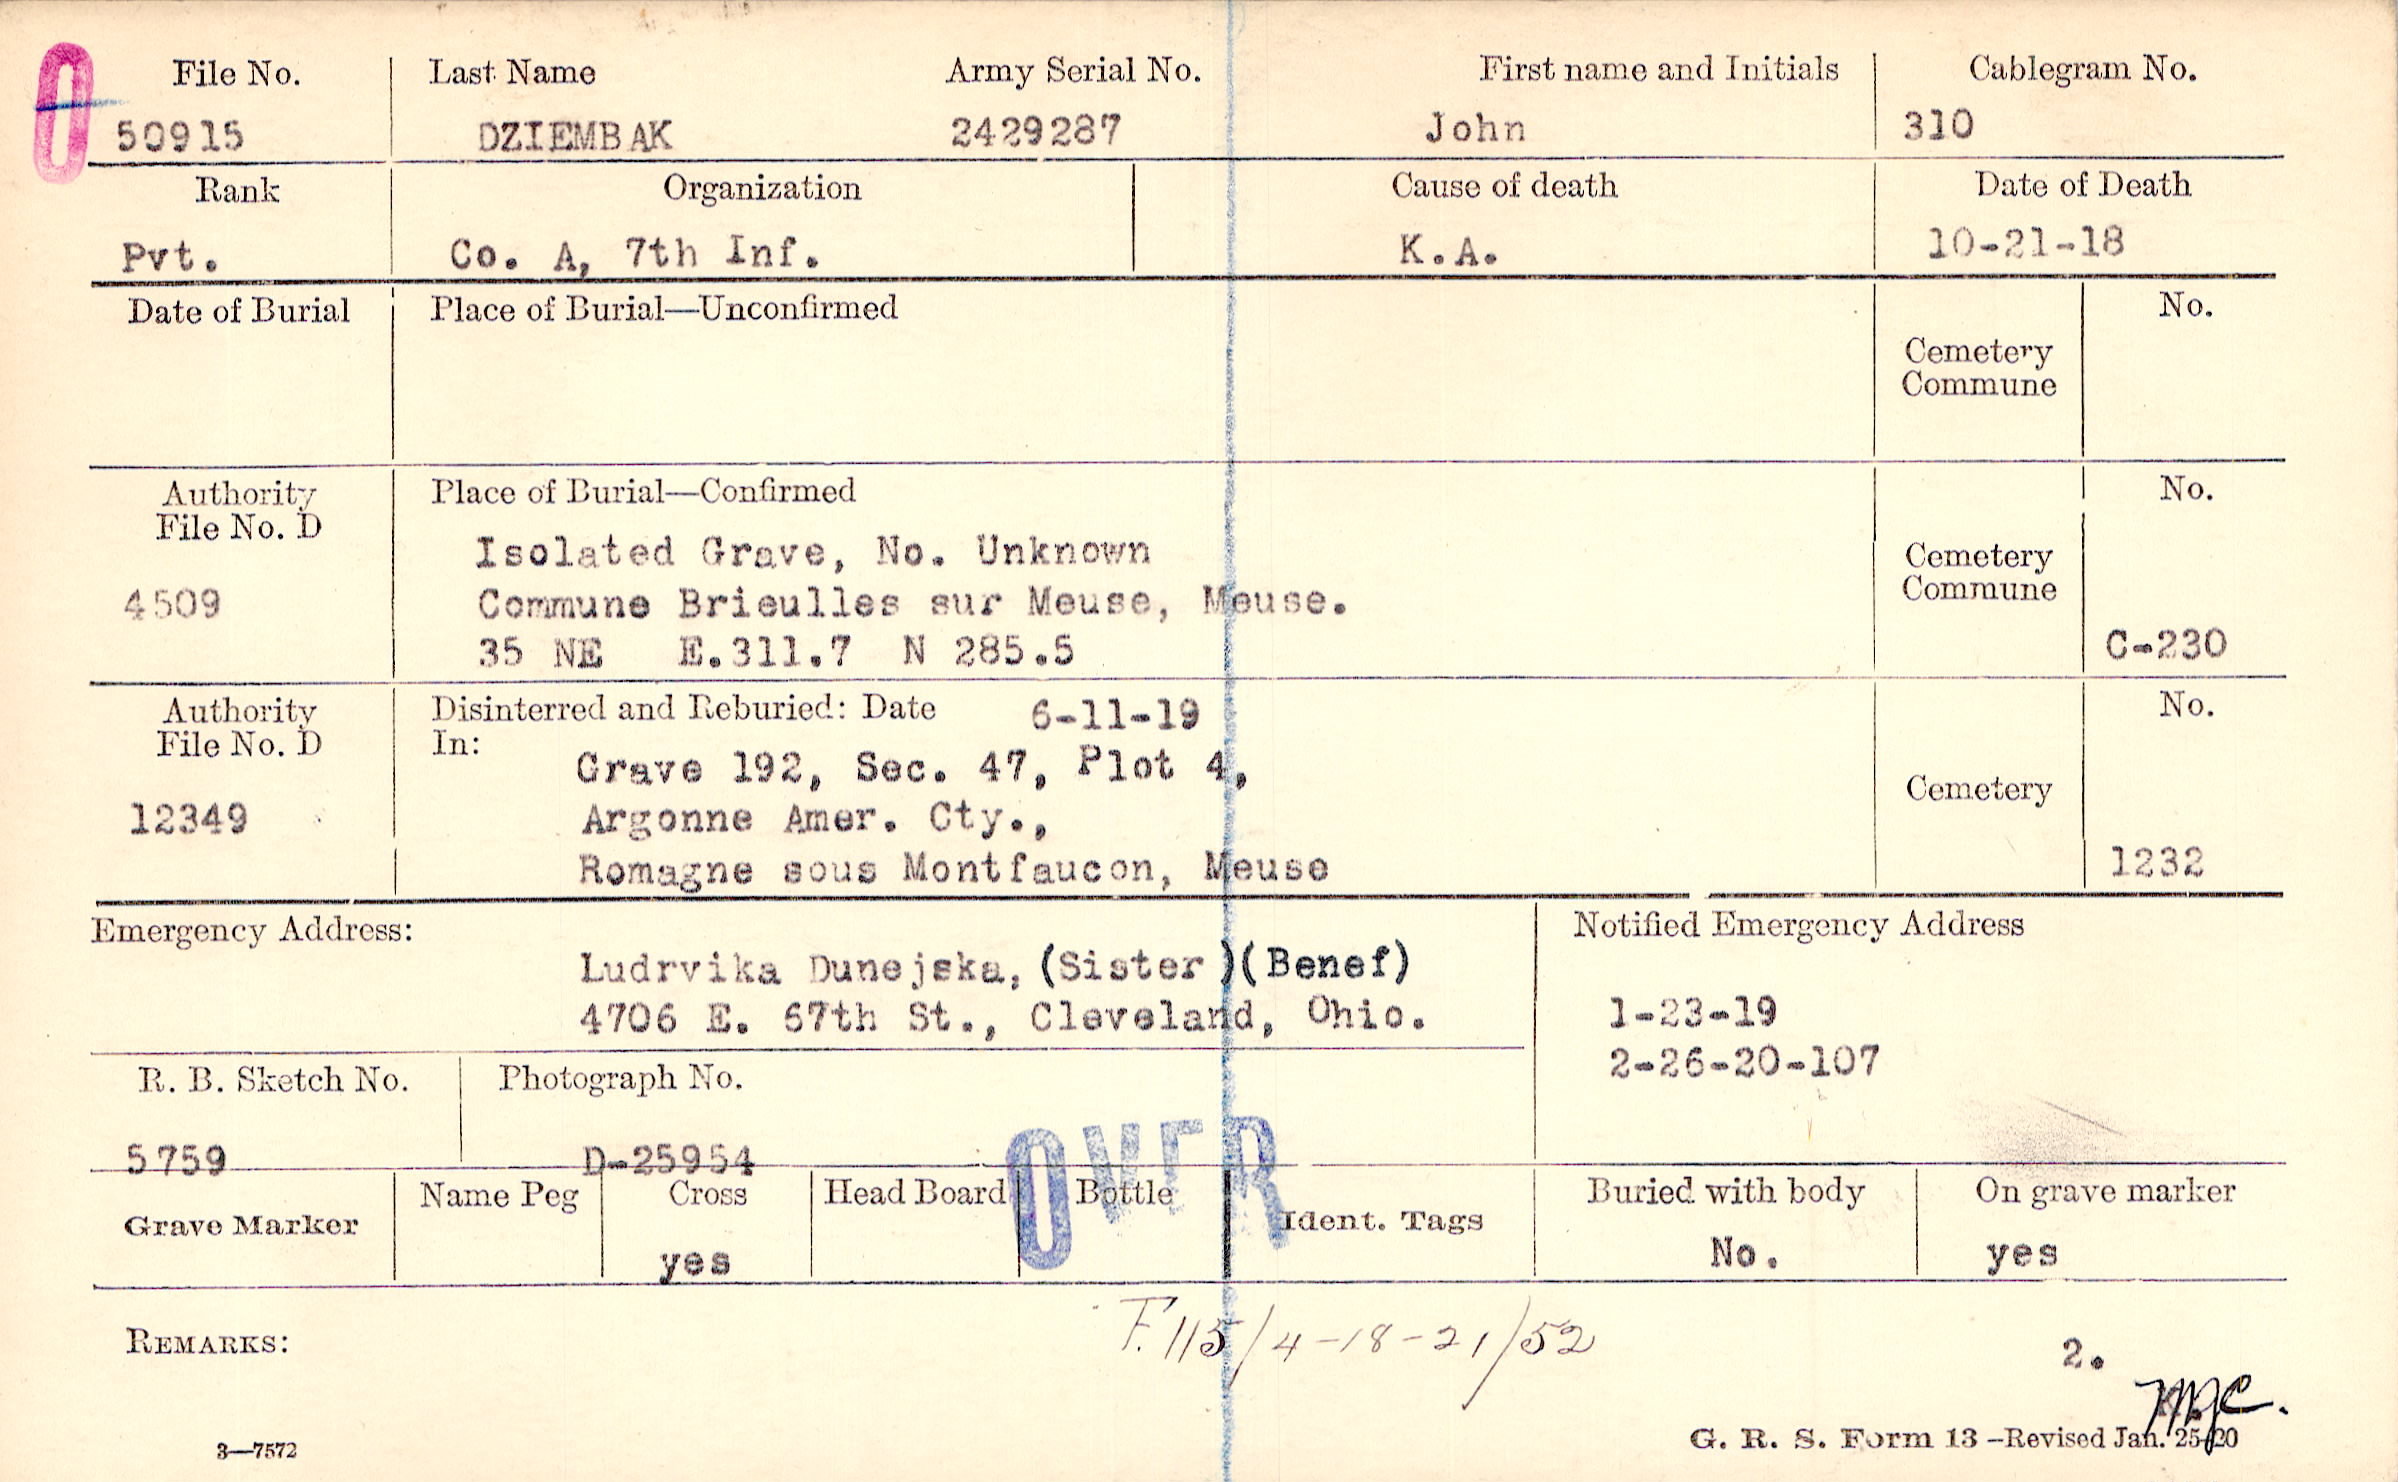 0
File No. Last Name Army Serial No. First name and Initials Cablegram No.
50915 DZIEMBAK 2429287 John 310
Rank Organization Cause of death Date of Death
Pvt. Co. A, 7th Inf. K.A. 10-21-18
Date of Burial Place of Burial—Unconfirmed No.
Cemetery
Commune
Authority Place of Burial—Confirmed No.
File No. D
Isolated Grave, No. Unknown
Cemetery
Commune
4509 Commune Brieulles sur Meuse, Meuse.
35 NE E.311.7 N 285.5 C-230
Authority Disinterred and Reburied: Date 6-11-19 No.
File No. D In:
Grave 192, Sec. 47, Plot 4,
Cemetery
12349 Argonne Amer. Cty.,
Romagne sous Montfaucon, Meuse 1232
Emergency Address: Notified Emergency Address
Ludrvika Dunejska, (Sister)(Benef)
4706 E. 67th St., Cleveland, Ohio. 1-23-19
2-26-20-107
R. B. Sketch No. Photograph No.
5759 D-25954
OVER
Grave Marker Name Peg Cross Head Board Bottle Ident. Tags Buried with body On grave marker
yes No. yes
REMARKS: F.115/4-18-21/52 2.
3—7572 G. R. S. Form 13—Revised Jan. 25-20